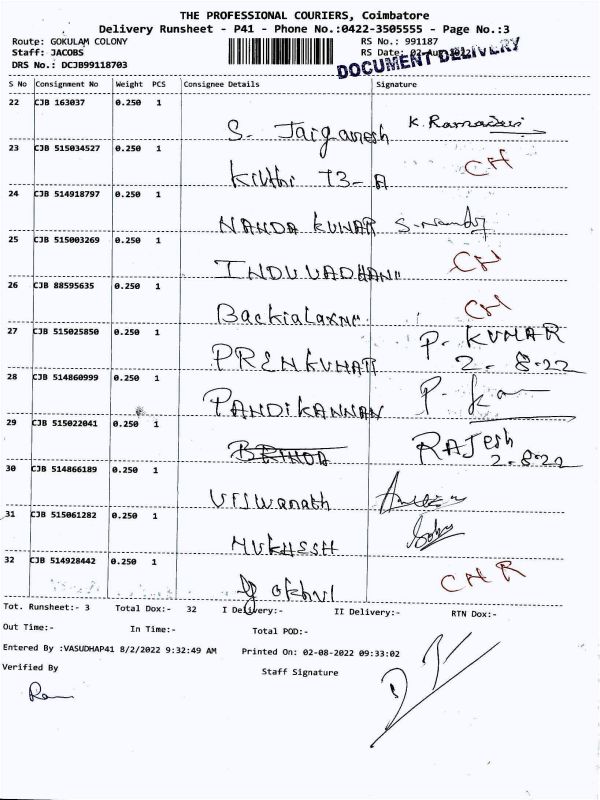 THE PROFESSIONAL COURIERS, Coimbatore
Delivery Runsheet - P41 - Phone No.:0422-3505555 - Page No.:3
Route: GOKULAM COLONY RS No.: 991187
Staff: JACOBS RS Date: 02-Aug-2022
DRS No.: DCJB99118703 DOCUMENT DELIVERY
S No Consignment No Weight PCS Consignee Details Signature
22 CJB 163037 0.250 1
S. Jaiganesh K. Ramadevi
23 CJB 515034527 0.250 1
T3-A CH
24 CJB 514918797 0.250 1
NANDA KUMAR
25 CJB 515003269 0.250 1
INDUVADHANI CH
26 CJB 88595635 0.250 1
Backialaxmi CH
27 CJB 515025850 0.250 1
PREMKUMAR P. KUMAR
2-8-22
28 CJB 514860999 0.250 1
PANDIKANNAN P.
29 CJB 515022041 0.250 1
BRINDA RAJesh
2-8-22
30 CJB 514866189 0.250 1
VISWanath
31 CJB 515061282 0.250 1
MUKHSSH
32 CJB 514928442 0.250 1
CNR
Tot. Runsheet:- 3 Total Dox:- 32 I Delivery:- II Delivery:- RTN Dox:-
Out Time:- In Time:- Total POD:-
Entered By :VASUDHAP41 8/2/2022 9:32:49 AM Printed On: 02-08-2022 09:33:02
Verified By Staff Signature